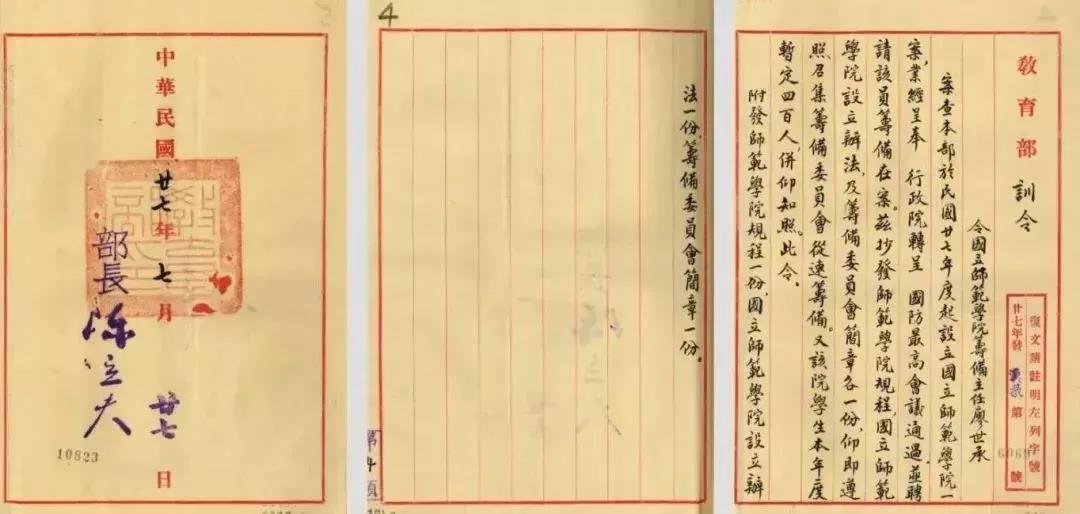 教育部 訓令
復文請註明左列字號
廿七年發 漢教 第 6069 號
令國立師範學院籌備主任廖世承
案查本部於民國廿七年度起設立國立師範學院一
案，業經呈奉 行政院轉呈 國防最高會議通過，並聘
請該員籌備在案。茲抄發師範學院規程，國立師範
學院設立辦法，及籌備委員會簡章各一份，仰即遵
照召集籌備委員會從速籌備。又該院學生本年度
暫定四百人，併仰知照。此令。
附發師範學院規程一份，國立師範學院設立辦
4
法一份，籌備委員會簡章一份。
第4頁
中華民國廿七年七月廿七日
部長 陳立夫
10823